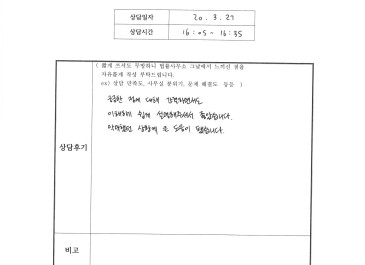 상담일자 20. 3. 27
상담시간 16:05 - 16:35
( 짧게 쓰셔도 무방하니 법률사무소 그날에서 느끼신 점을
자유롭게 작성 부탁드립니다.
ex) 상담 만족도, 사무실 분위기, 문제 해결도 등등 )
궁금한 점에 대해 간결하면서도
이해하기 쉽게 설명해주셔서 좋았습니다.
막막했던 상황에 큰 도움이 됐습니다.
상담후기
비고